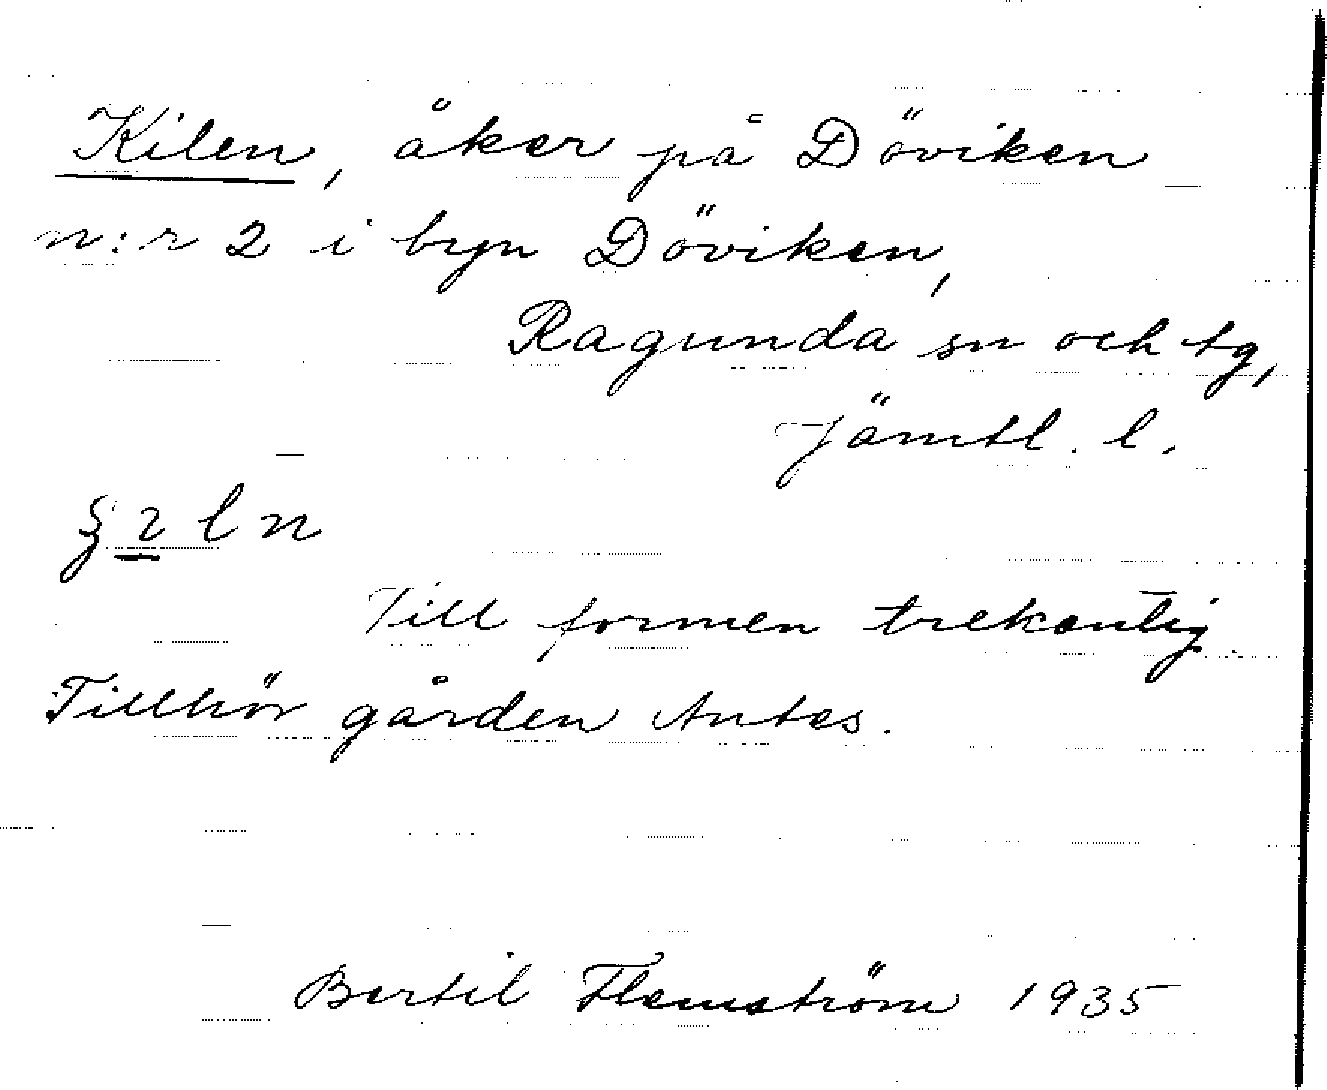 Kilen, åker på Döviken
n:r 2 i byn Döviken,
Ragunda sn och tg,
Jämtl. l.
Till formen trekantig
Tillhör gården Antes.
Bertil Flemström 1935